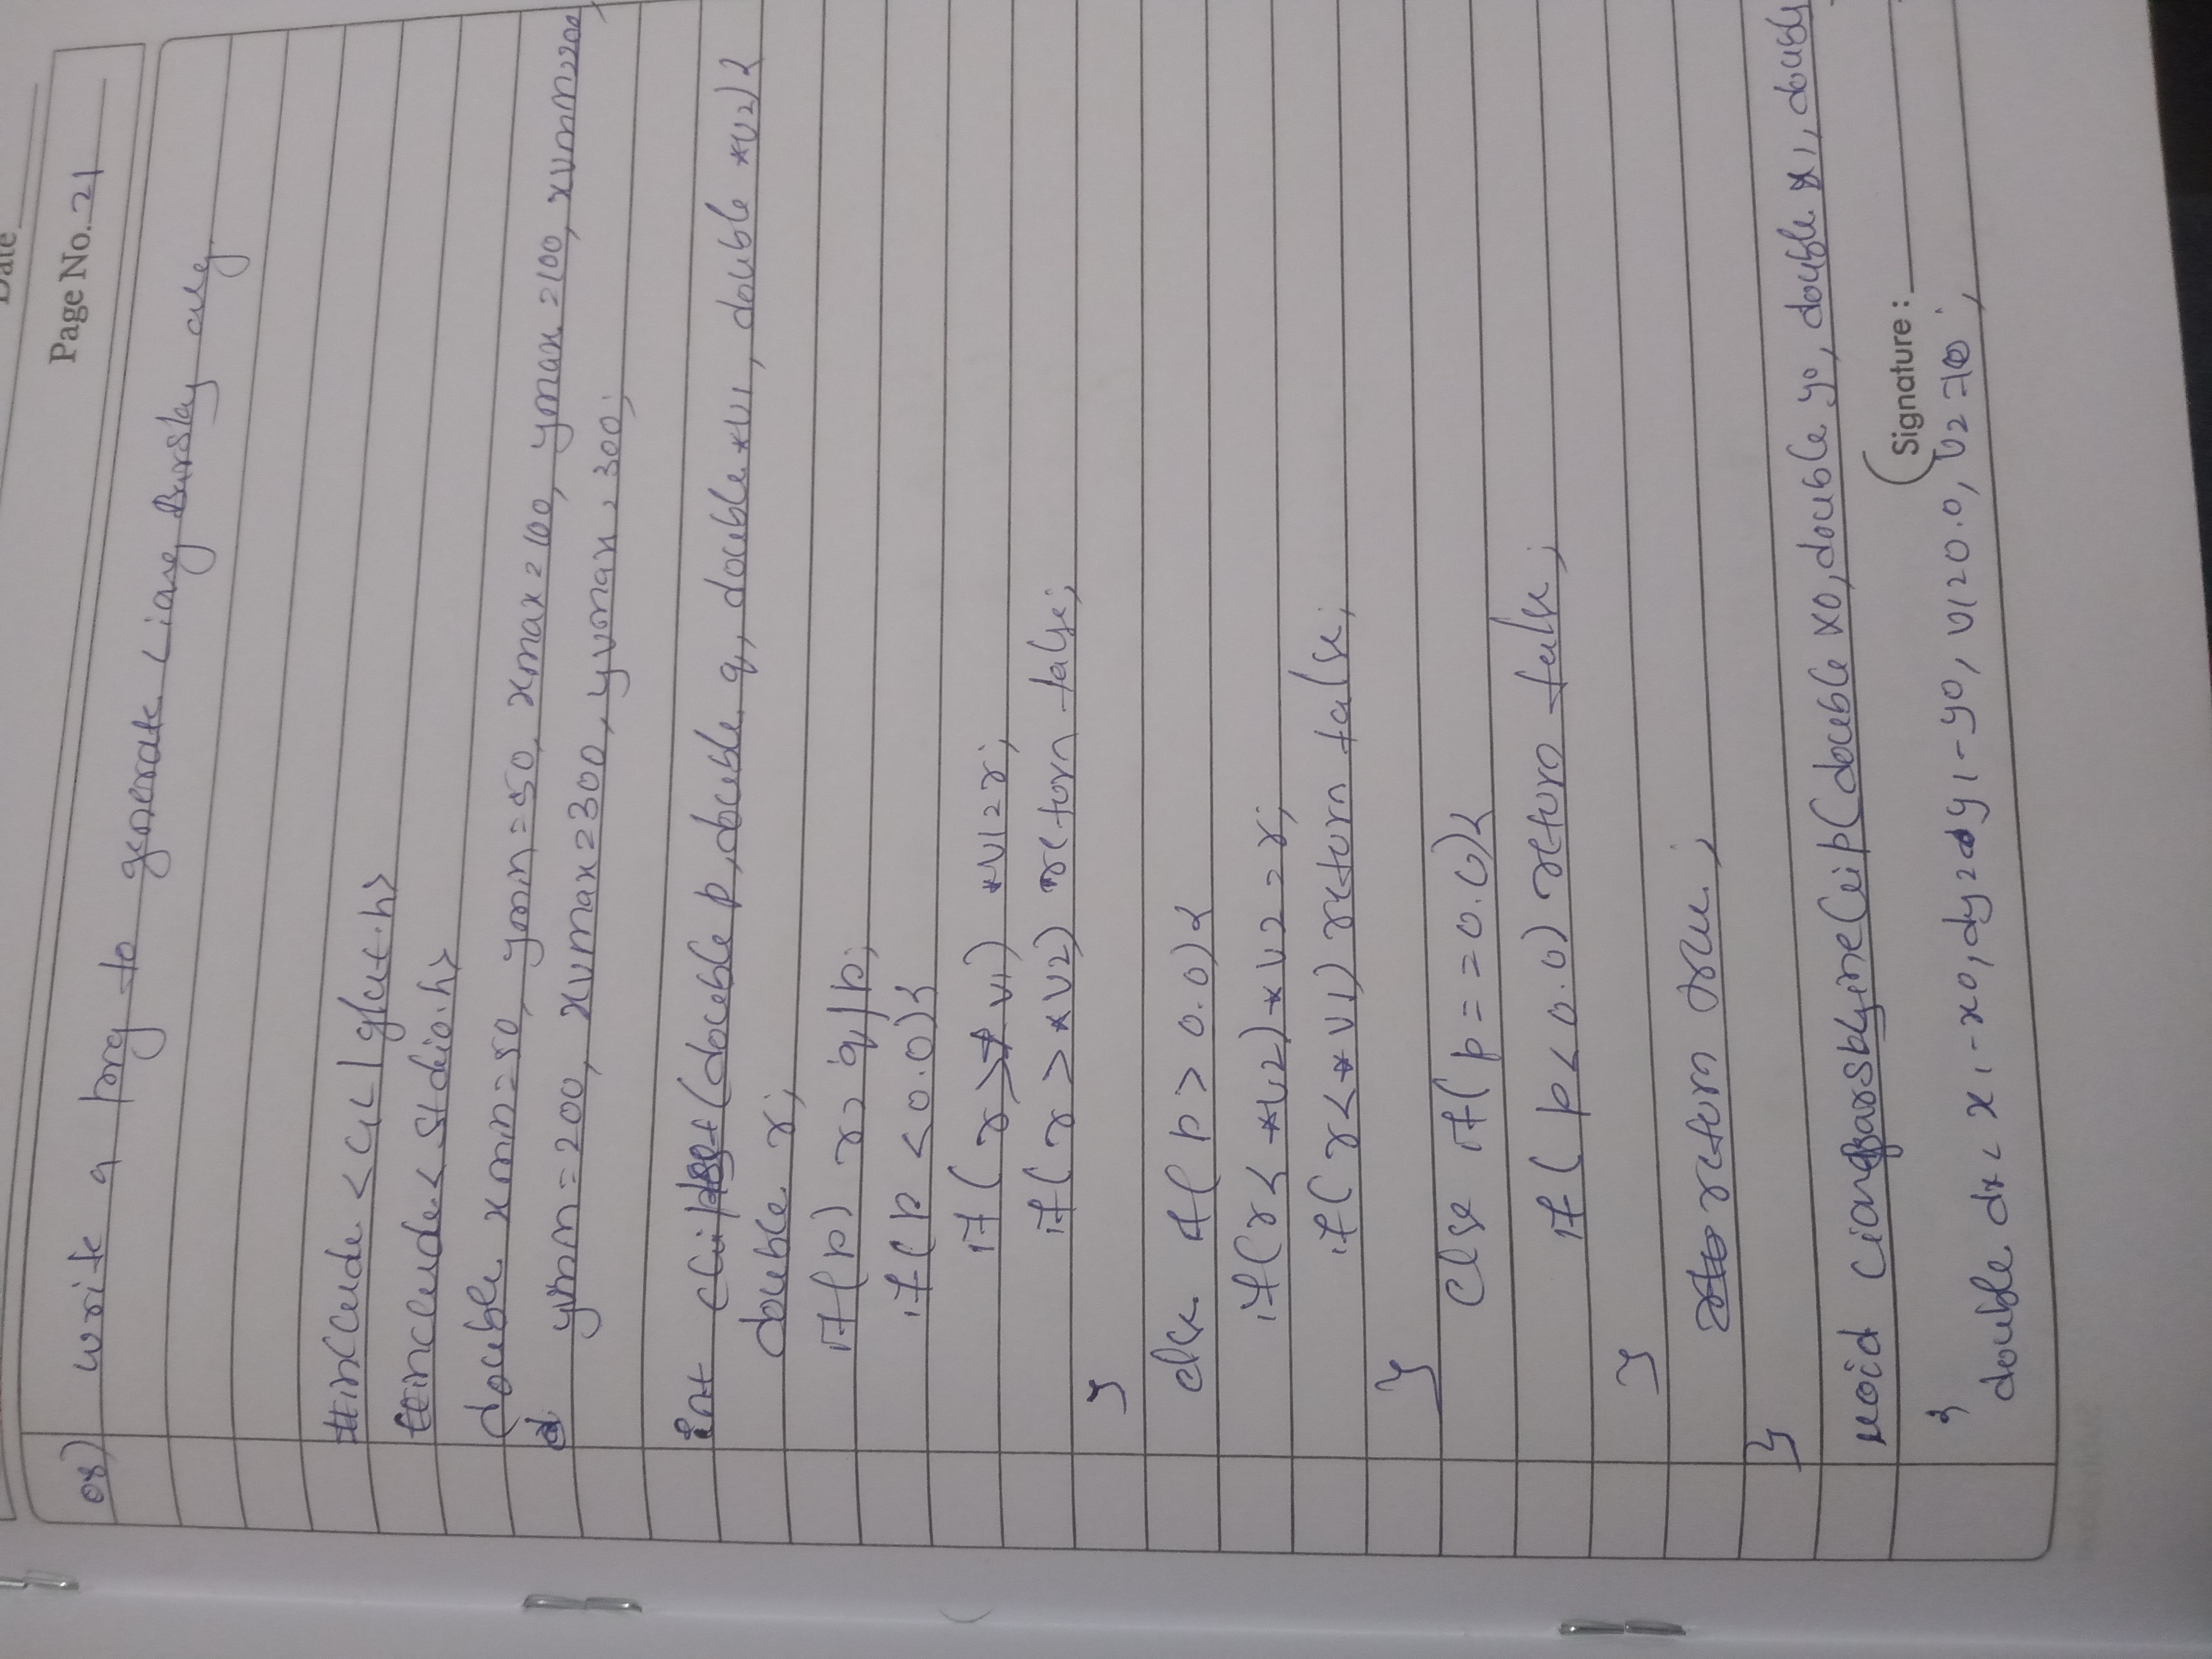 Date
Page No. 21
08) write a prog to generate Liang Barsky alg
#include <GL/glut.h>
#include <stdio.h>
double xmin=50, ymin=50, xmax=100, ymax=100, xvmin=200
yvmin=200, xvmax=300, yvmax=300;
int (double p, double q, double *u1, double *u2){
double r;
if(p) r=q/p;
if(p<0.0){
if(r>*u1) *u1=r;
if(r>*u2) return false;
}
else if(p>0.0){
if(r<*u2)*u2=r;
if(r<*u1) return false;
}
else if(p==0.0){
if(p<0.0) return false;
}
return true;
}
void LiangBarskyLineClip(double x0, double y0, double x1, double
{
double dx=x1-x0, dy=y1-y0, u1=0.0, u2=
Signature :